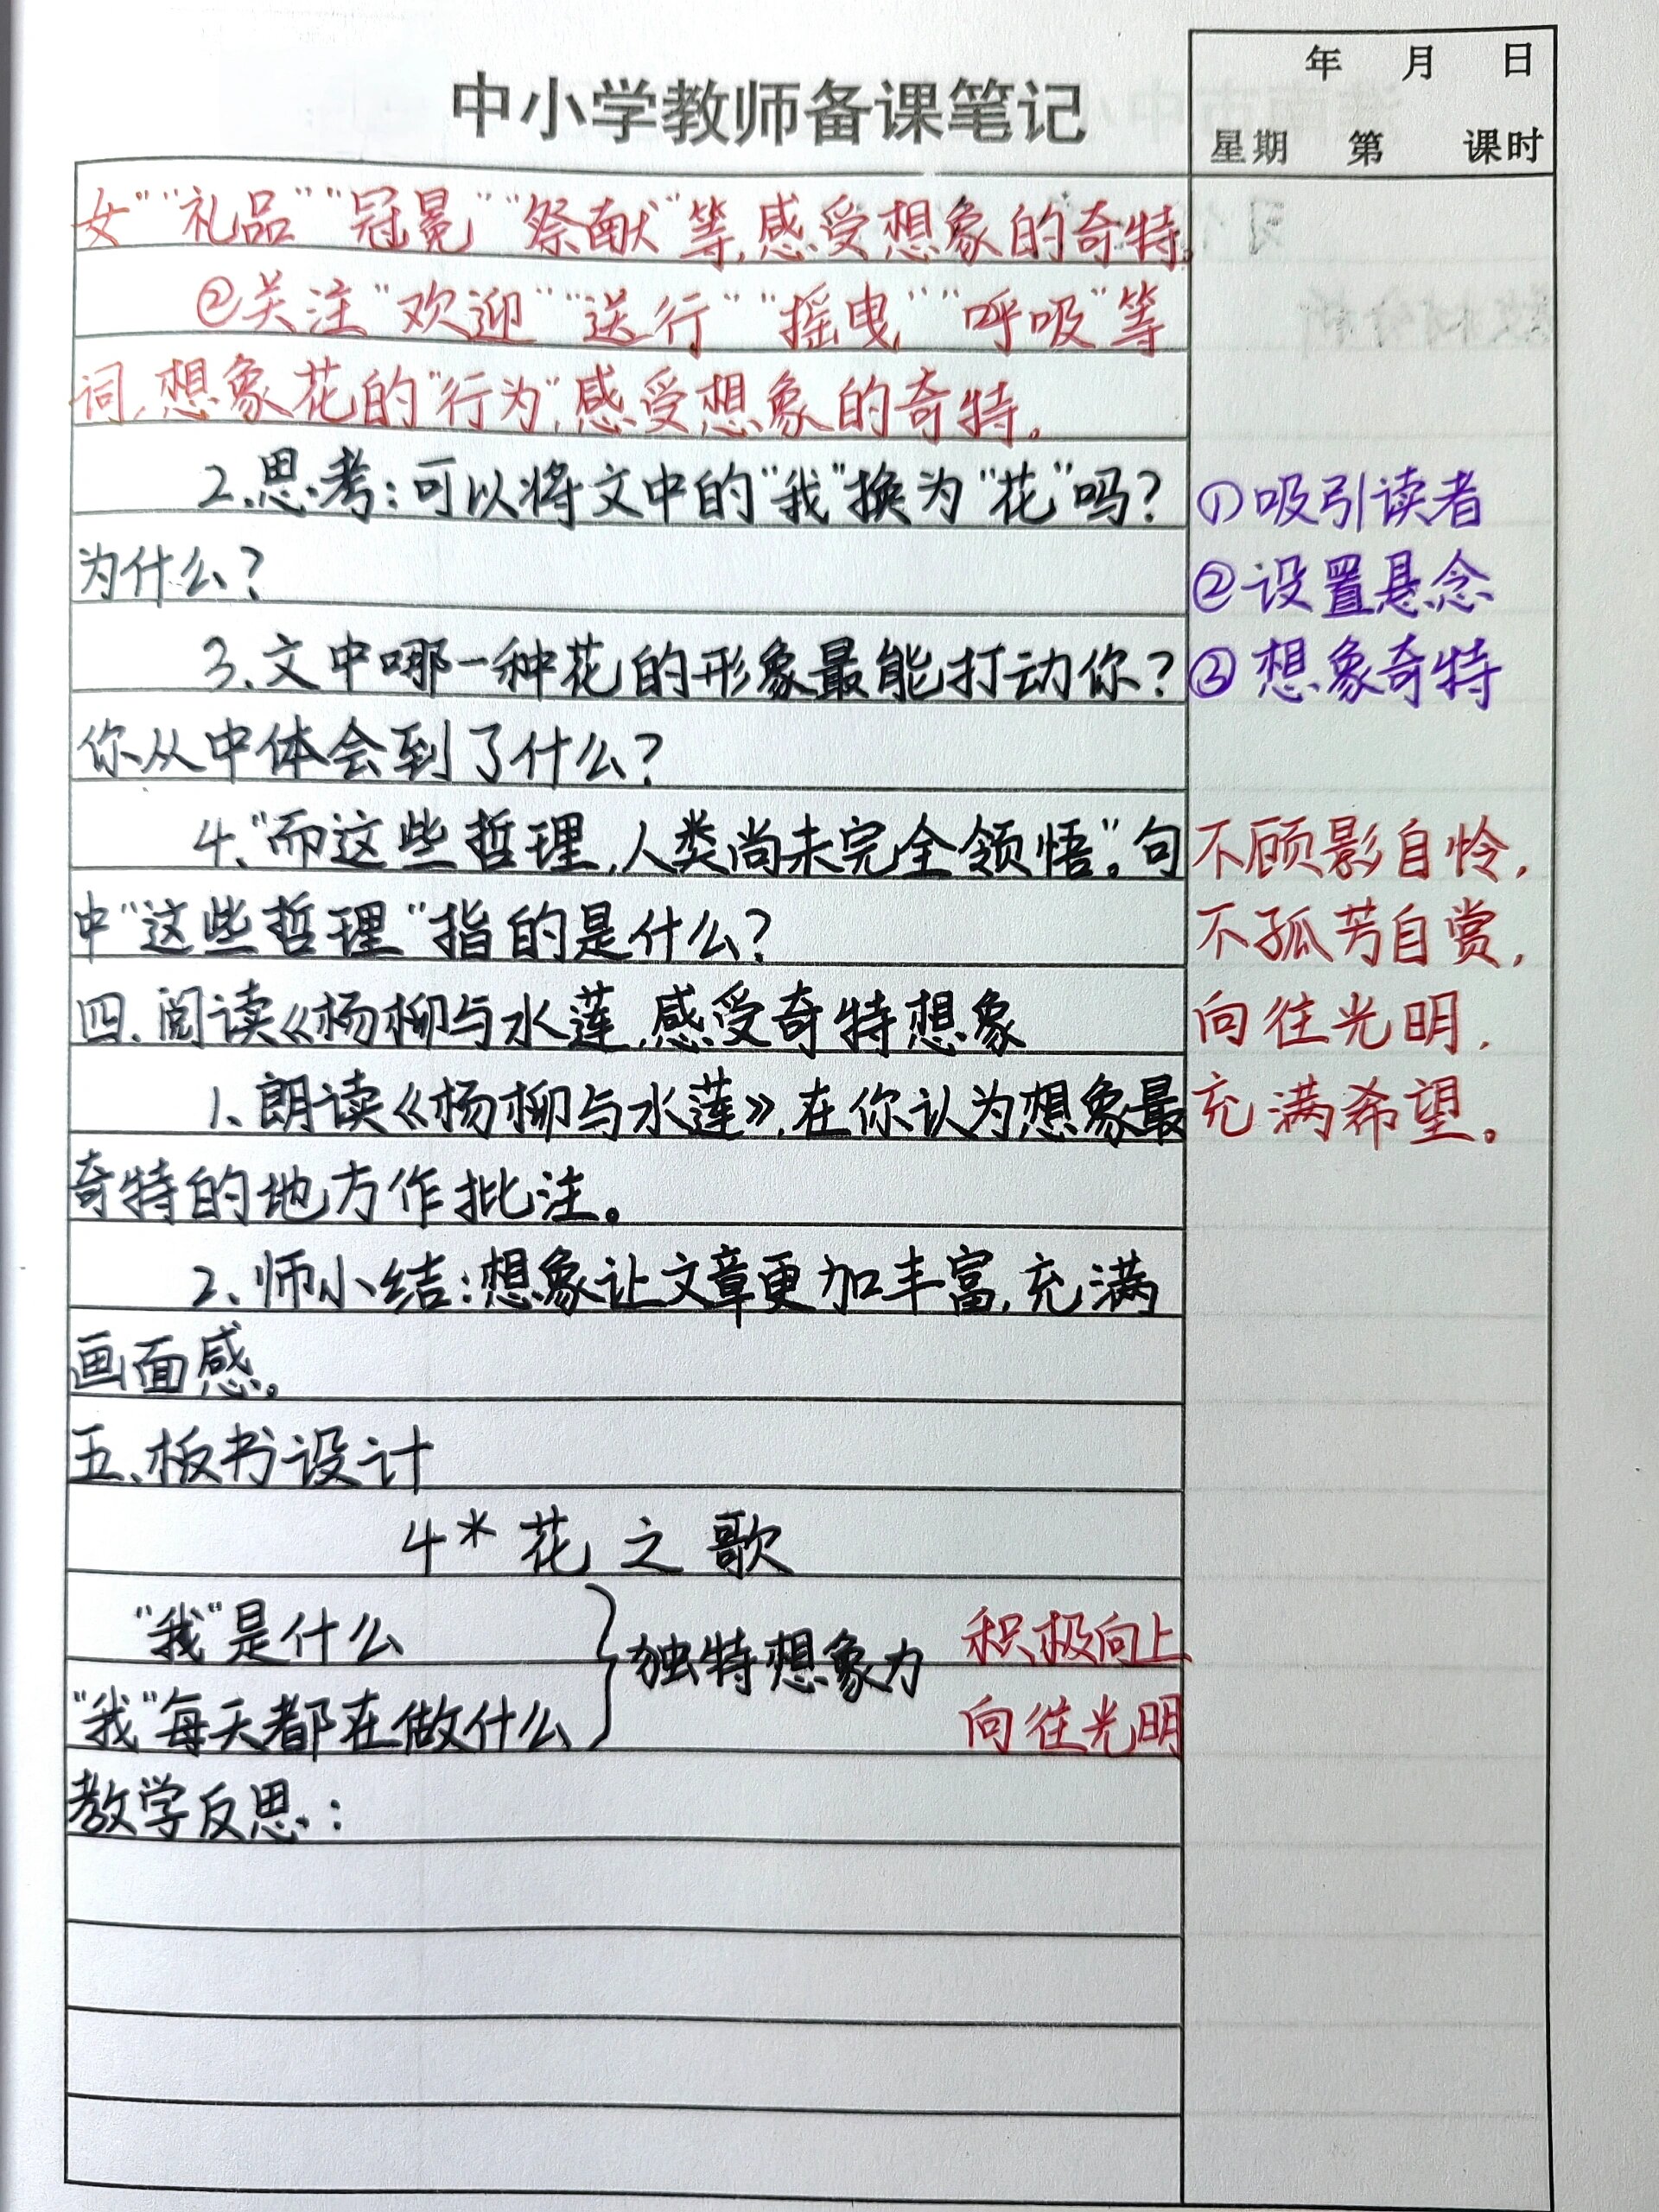 年 月 日
中小学教师备课笔记
星期 第 课时
女”“礼品”“冠冕”“祭献”等,感受想象的奇特。
②关注“欢迎”“送行”“摇曳”“呼吸”等
词,想象花的“行为”,感受想象的奇特。
2.思考:可以将文中的“我”换为“花”吗?
①吸引读者
为什么?
②设置悬念
3、文中哪一种花的形象最能打动你?
③想象奇特
你从中体会到了什么?
4、“而这些哲理,人类尚未完全领悟”。句
不顾影自怜,
中“这些哲理”指的是什么?
不孤芳自赏,
四、阅读《杨柳与水莲,感受奇特想象
向往光明,
1、朗读《杨柳与水莲》,在你认为想象最
充满希望。
奇特的地方作批注。
2、师小结:想象让文章更加丰富,充满
画面感。
五、板书设计
4* 花之歌
“我”是什么
独特想象力
积极向上
“我”每天都在做什么
向往光明
教学反思: